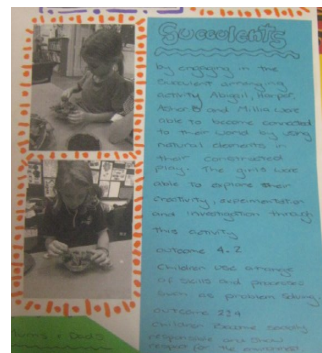 Succulents
by engaging in the
succulent arranging
activity Abigail, Harper,
and Millie were
able to become connected
to their world by using
natural elements in
their constructed
play. The girls were
able to explore their
creativity, experimentation
and investigation through
this activity
outcome 4.2
Children use a range
of skills and processes
such as problem solving
outcome 2.4
Children become socially
responsible and show
respect for the environment